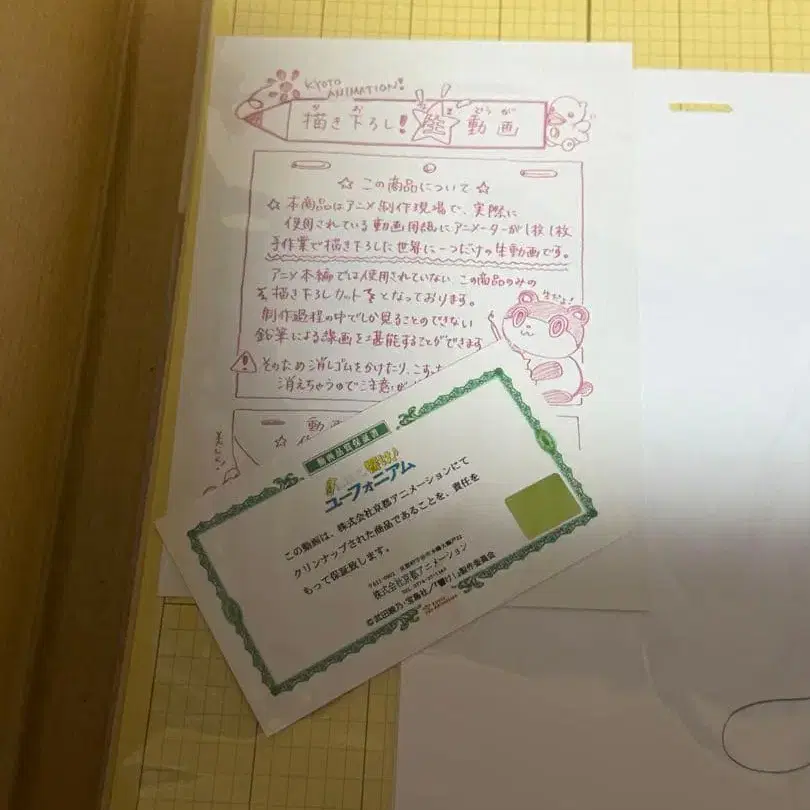 KYOTO
ANIMATION!
描き下ろし! 生 動画
☆ この商品について ☆
☆ 本商品はアニメ制作現場で、実際に
使用されている動画用紙にアニメーターが1枚1枚
手作業で描き下ろした世界に一つだけの生動画です。
アニメ本編では使用されていない、この商品のみの
描き下ろしカットとなっております。
制作過程の中でしか見ることのできない
鉛筆による線画を堪能することができます
そのため消しゴムをかけたり、こす
消えちゃうのでご注意が
生だよ!
動画品質保証書
響け!
ユーフォニアム
この動画は、株式会社京都アニメーションにて
クリンナップされた商品であることを、責任を
もって保証致します。
株式会社京都アニメーション
©武田綾乃・宝島社/『響け!』製作委員会